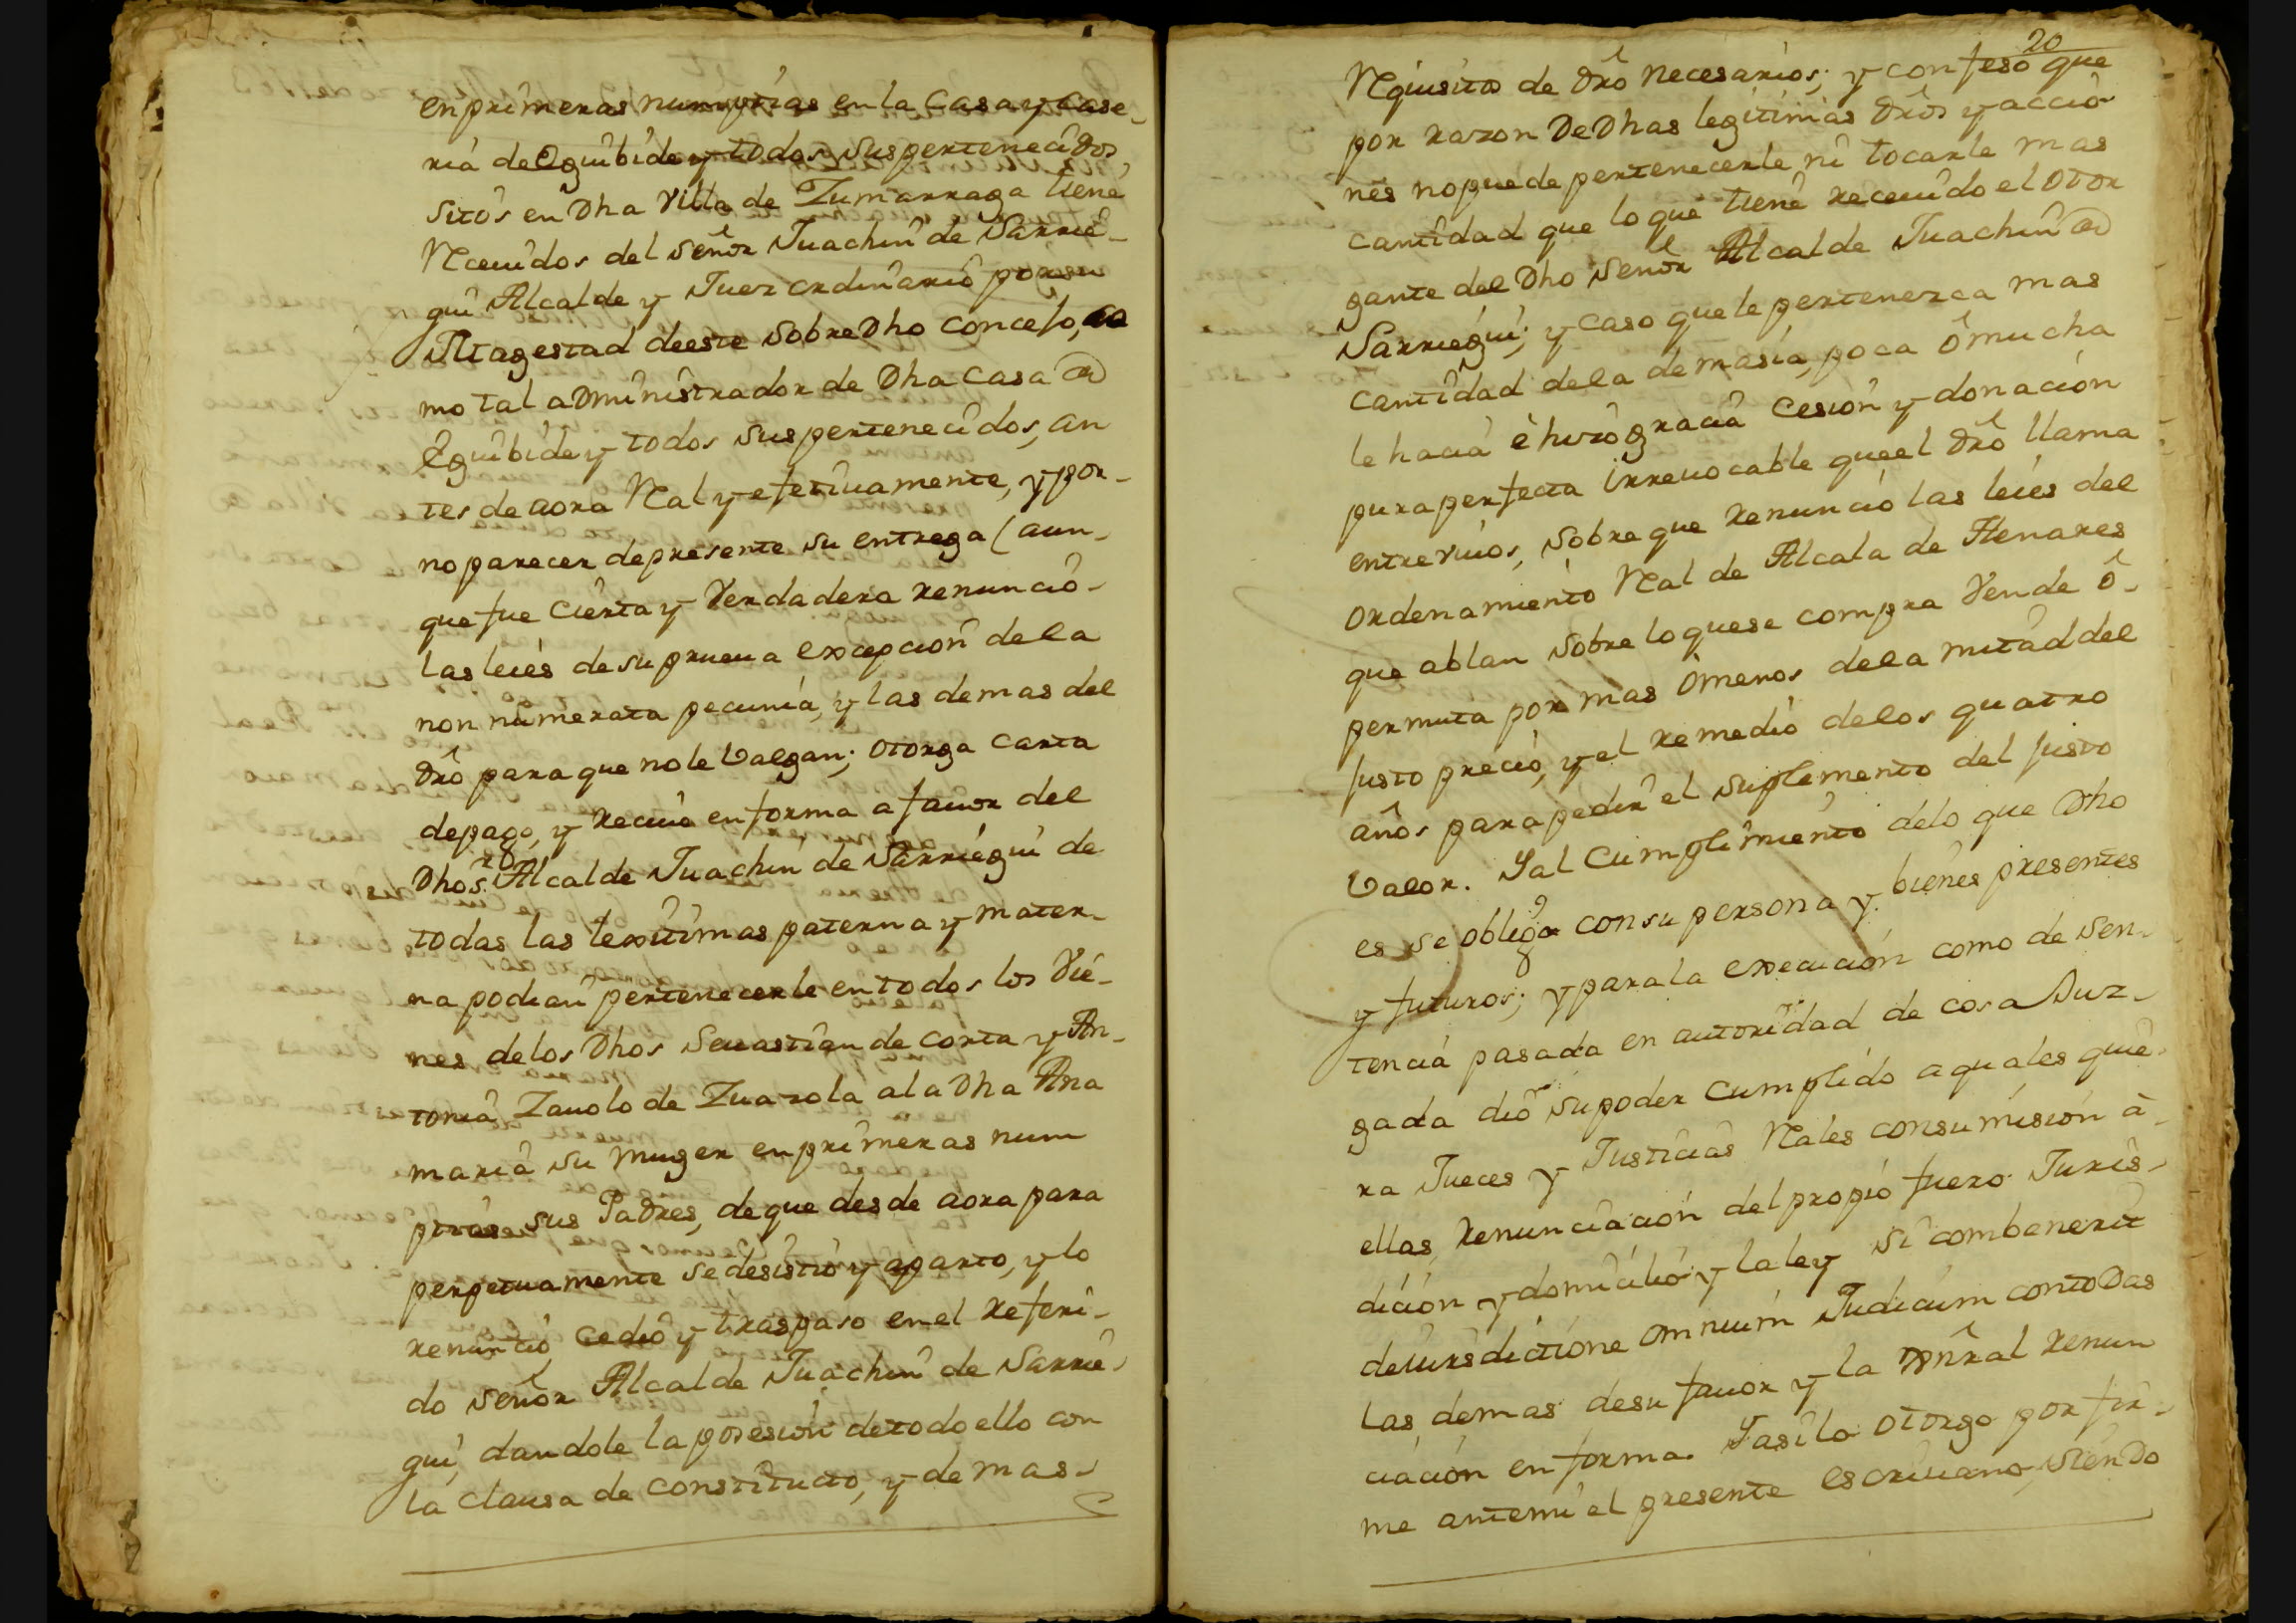 en primeras numpzias en la Casa y Case-
ria de Eguibide y todos sus pertenecidos
sitos en Dha Villa de Zumarraga tiene
Rceuidos del señor Juachin de Sarrie-
gui Alcalde y Juez ordinario por su
Magestad de este sobre Dho concejo, co
mo tal administrador de Dha Casa de
Eguibide y todos sus pertenecidos, an
tes de aora Real y efetiuamente, y por-
no parecer de presente su entrega (aun-
que fue cierta y Verdadera renunció-
las leies de su prueua excepcion de la
non numerata pecunia, y las demas del
dro para que no le Valgan; otorga carta
de pago, y reciuo en forma a fauor del
Dho sor Alcalde Juachin de Sarriegui de
todas las lexitimas paterna y mater-
na podian pertenecerle en todos los Vie-
nes de los Dhos Seuastian de Corta y An-
tonia Zauolo de Zuazola a la Dha Ana
maria su muger en primeras num
pzias sus Padres, de que desde aora para
perpetuamente se desistió y aparto, y lo
renunció cedió y traspaso en el referi-
do señor Alcalde Juachin de Sarrie-
gui, dandole la posesion de todo ello con
la clausa de constituto, y demas-
20
Rquisitos de dro necesarios; y confesó que
por razon De Dhas legitimas dros y accio
nes no puede pertenecerle ni tocarle mas
cantidad que lo que tiene receuido el otor
gante del Dho señor Alcalde Juachin de
Sarriegui; y caso que le pertenezca mas
cantidad de la demasia, poca ó mucha
le hacia é hizo gracia cesion y donacion
pura perfecta irreuocable que el dro llama
entre viuos, sobre que renunció las leies del
ordenamiento Real de Alcala de Henares
que ablan sobre lo que se compra Vende ó-
permuta por mas ó menos de la mitad del
justo precio, y el remedio de los quatro
años para pedir el suplemento del justo
Valor. Y al cumplimiento de lo que Dho
es se obliga con su persona y bienes presentes
y futuros; y para la execucion como de sen-
tencia pasada en autoridad de cosa Juz-
gada dió su poder cumplido a quales quie-
ra Jueces y Justicias Rales con sumision á-
ellas, renunciacion del propio fuero Juris-
dicion y domicilio y la ley si combenerit
de iurisdictione omnium Judicum con todas
las demas de su fauor y la general renun
ciacion en forma. Y asi lo otorgo por fir-
me ante mi el presente escriuano, siendo